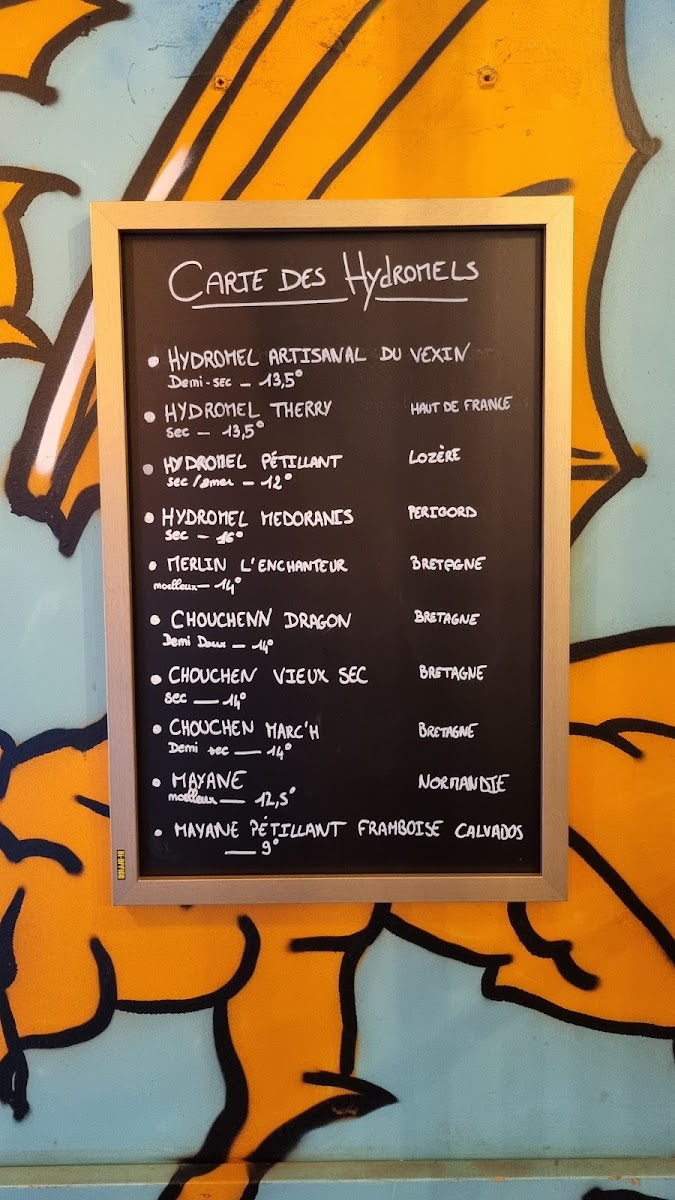 CARTE DES HYDROMELS
HYDROMEL ARTISANAL DU VEXIN
Demi-sec - 13,5°
HYDROMEL THERRY HAUT DE FRANCE
sec - 13,5°
HYDROMEL PÉTILLANT LOZÈRE
sec/amer - 12°
HYDROMEL MEDORANIS PERIGORD
sec - 16°
MERLIN L'ENCHANTEUR BRETAGNE
moelleux - 14°
CHOUCHENN DRAGON BRETAGNE
Demi Doux - 14°
CHOUCHEN VIEUX SEC BRETAGNE
sec - 14°
CHOUCHEN MARC'H BRETAGNE
Demi sec - 14°
MAYANE NORMANDIE
moelleux - 12,5°
MAYANE PÉTILLANT FRAMBOISE CALVADOS
- 9°